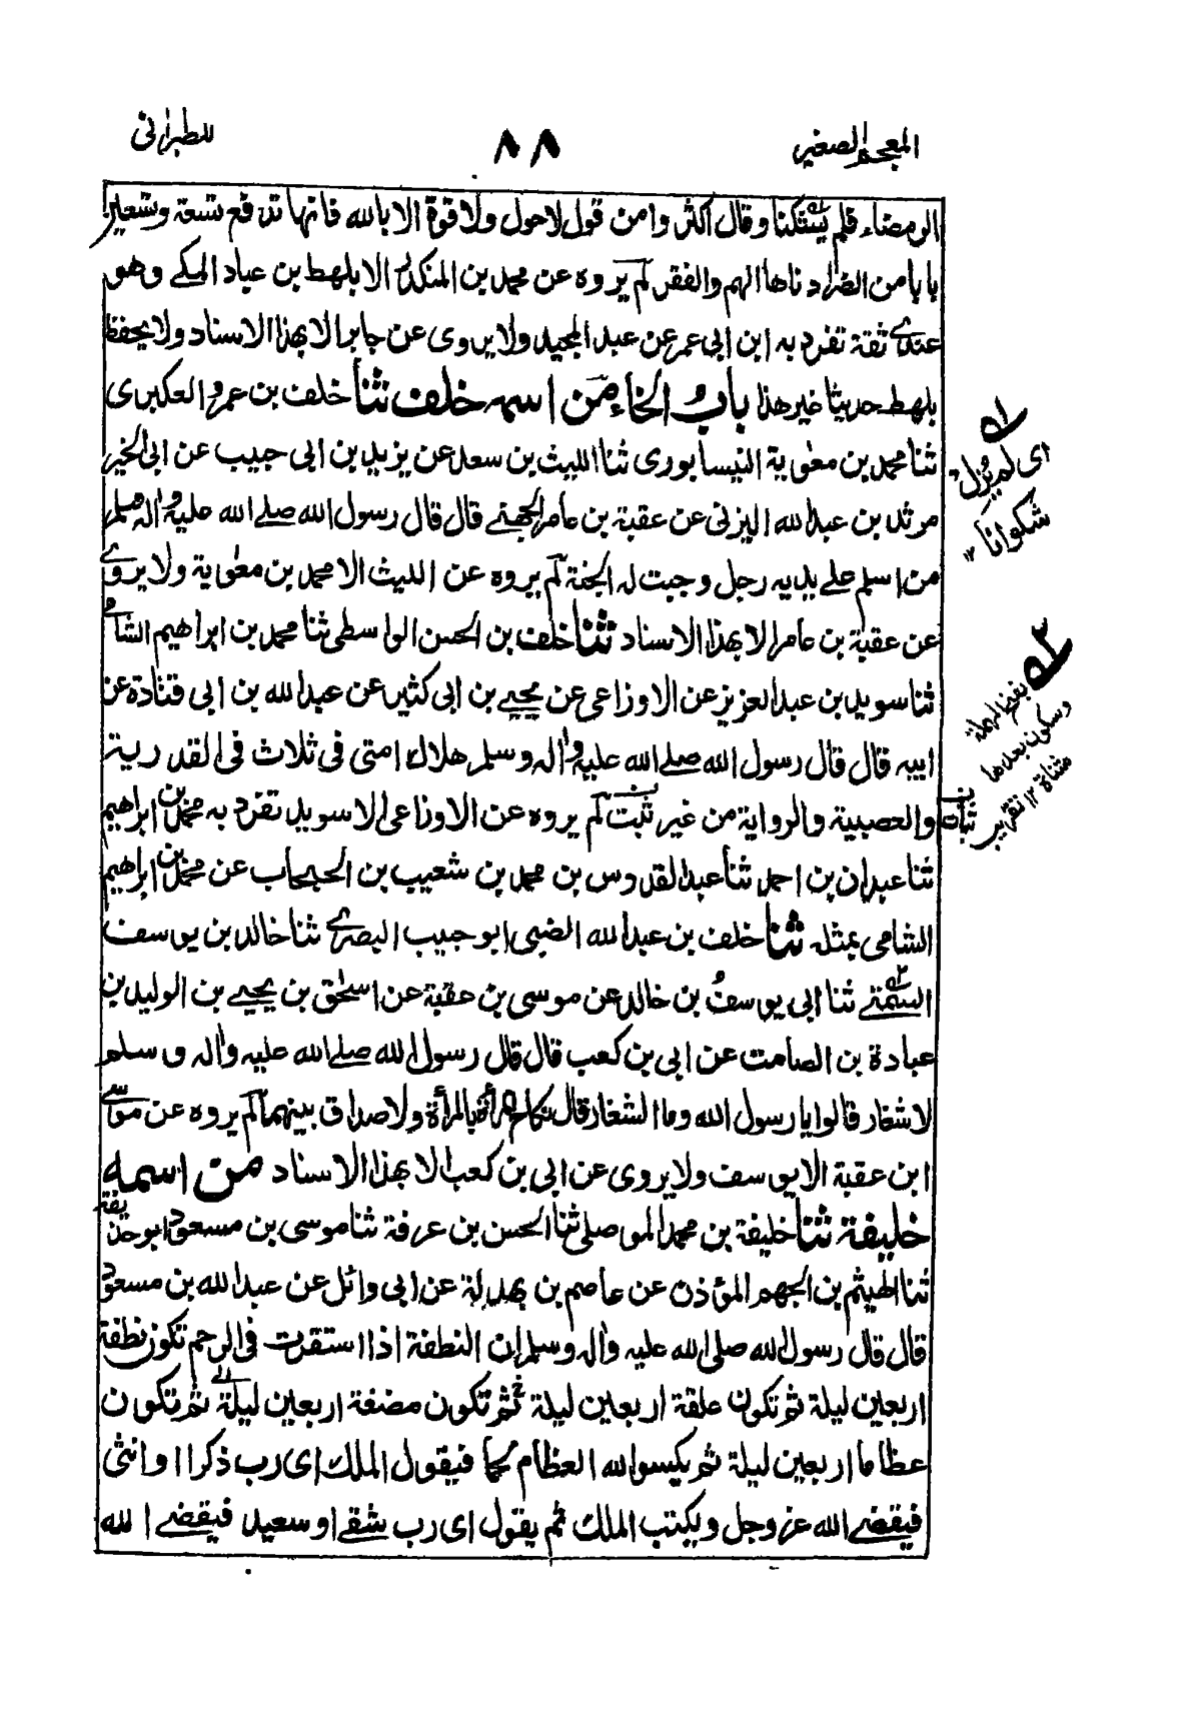 المعجم الصغير
٨٨
للطبرانی
الرمضاء فلم یشتکنا وقال اکثروا من قول لاحول ولا قوة الا بالله فانها تدفع تسعة وتسعین
بابا من الضر ادناها الهم والفقر لم یروه عن محمد بن المنکدر الا بلهط بن عباد المکے وهو
عندے ثقة تفرد به ابن ابی عمر عن عبد المجید ولا یروی عن جابر الا بهذا الاسناد ولا یحفظ
بلهط حدیثا غیر هذا باب الخاء من اسمه خلف ثنا خلف بن عمرو العکبری
ثنا محمد بن معٰویة النیسابوری ثنا اللیث بن سعد عن یزید بن ابی حبیب عن ابی الخیر
مرثد بن عبد الله الیزنی عن عقبة بن عامر الجهنے قال قال رسول الله صلے الله علیه واٰله وسلم
من اسلم علے یدیه رجل وجبت له الجنة لم یروه عن اللیث الا محمد بن معٰویة ولا یروے
عن عقبة بن عامر الا بهذا الاسناد ثنا خلف بن الحسن الواسطی ثنا محمد بن ابراهیم الشامی
ثنا سوید بن عبد العزیز عن الاوزاعی عن یحیے بن ابی کثیر عن عبد الله بن ابی قتادة عن
ابیه قال قال رسول الله صلے الله علیه واٰله وسلم هلاك امتی فی ثلاث فی القدریة
والعصبیة والروایة من غیر ثبت لم یروه عن الاوزاعی الا سوید تفرد به محمد بن ابراهیم
ثنا عبدان بن احمد ثنا عبد القدوس بن محمد بن شعیب بن الحبحاب عن محمد بن ابراهیم
الشامی بمثله ثنا خلف بن عبد الله الضبی ابو حبیب البصرے ثنا خالد بن یوسف
السمتے ثنا ابی یوسف بن خالد عن موسی بن عقبة عن اسحٰق بن یحیے بن الولید بن
عبادة بن الصامت عن ابی بن کعب قال قال رسول الله صلے الله علیه واٰله وسلم
لا شغار قالوا یا رسول الله وما الشغار قال نکاح المرأة بالمرأة ولا صداق بینهما لم یروه عن موسے
ابن عقبة الا یوسف ولا یروی عن ابی بن کعب الا بهذا الاسناد من اسمه
خلیفة ثنا خلیفة بن محمد الموصلی ثنا الحسن بن عرفة ثنا موسی بن مسعود ابو حذیفة
ثنا الهیثم بن الجهم المؤذن عن عاصم بن بهدلة عن ابی وائل عن عبد الله بن مسعود
قال قال رسول الله صلی الله علیه واٰله وسلم ان النطفة اذا استقرت فی الرحم تکون نطفة
اربعین لیلة ثم تکون علقة اربعین لیلة ثم تکون مضغة اربعین لیلة ثم تکون
عظاما اربعین لیلة ثم یکسو الله العظام لحما فیقول الملك ای رب ذکر او انثی
فیقضے الله عز وجل ویکتب الملك ثم یقول ای رب شقے او سعید فیقضے الله
١
ای لم یُزل
شکوانا ١٢
٢
بفتح المهملة
وسکون بعدها
مثناة ١٢ تقریب